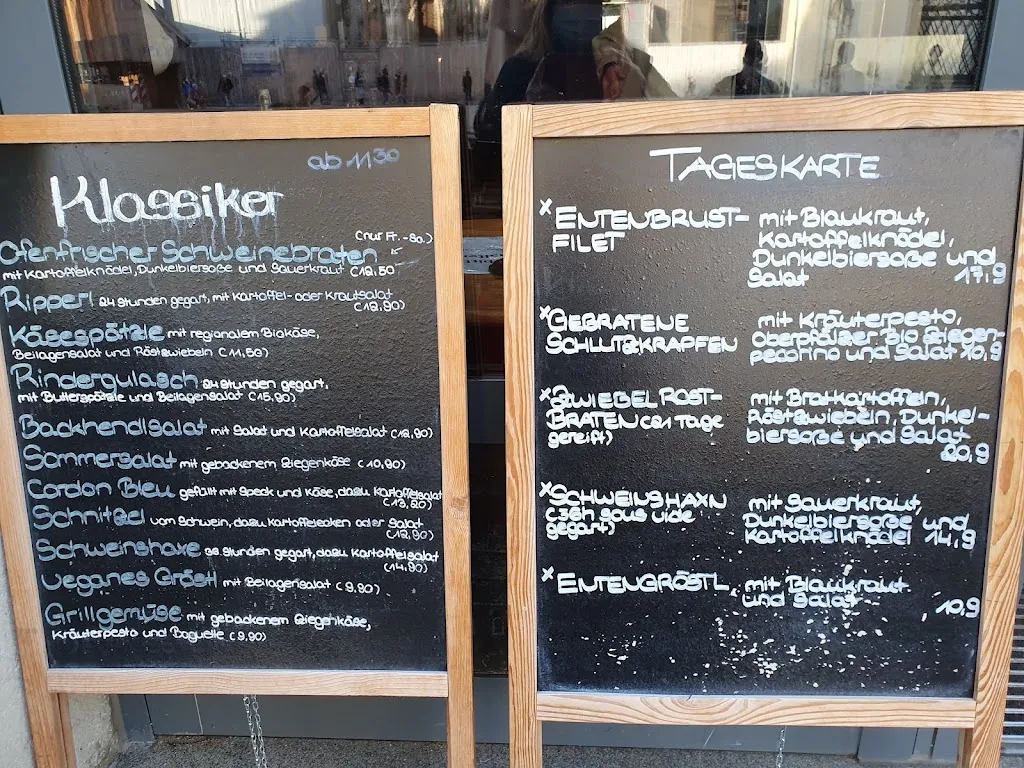 ab 11³⁰
Klassiker
(nur Fr. - So.)
Ofenfrischer Schweinebraten
mit Kartoffelknödel, Dunkelbiersoße und Sauerkraut (12,50
Ripperl 24 Stunden gegart, mit Kartoffel- oder Krautsalat
(12,90)
Käsespätzle mit regionalem Biokäse,
Beilagensalat und Röstzwiebeln (11,50)
Rindergulasch 24 Stunden gegart,
mit Butterspätzle und Beilagensalat (15,90)
Backhendlsalat mit Salad und Kartoffelsalat (12,90)
Sommersalat mit gebackenem Ziegenkäse (10,90)
Cordon Bleu gefüllt mit Speck und Käse, dazu Kartoffelsalat
(13,20)
Schnitzel vom Schwein, dazu Kartoffelecken oder Salat
(12,90)
Schweinshaxe 36 Stunden gegart, dazu Kartoffelsalat
(14,90)
Veganes Gröstl mit Beilagensalat (9,90)
Grillgemüse mit gebackenem Ziegenkäse,
Kräuterpesto und Baguette (9,90)
TAGESKARTE
x ENTENBRUST- mit Blaukraut,
FILET Kartoffelknödel,
Dunkelbiersoße und
Salat 17,9
x GEBRATENE mit Kräuterpesto,
SCHLUTZKRAPFEN Oberpfälzer Bio Ziegen-
pecorino und Salat 10,9
x ZWIEBELROST- mit Bratkartoffeln,
BRATEN (21 Tage Röstzwiebeln, Dunkel-
gereift) biersoße und Salat
20,9
x SCHWEINSHAXN mit Sauerkraut,
(36h sous vide Dunkelbiersoße und
gegart) Kartoffelknödel 14,9
x ENTENGRÖSTL mit Blaukraut
und Salat 10,9